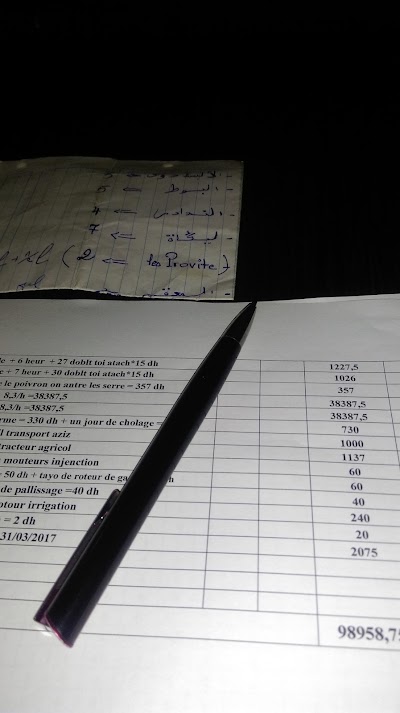 - البوط => 5
=> 4
=> 7
(2 <= les Provite)
+ 6 heur + 27 doblt toi atach*15 dh 1227,5
+ 7 heur + 30 doblt toi atach*15 dh 1026
le poivron on antre les serre = 357 dh 357
8,3/h =38387,5 38387,5
8,3/h=38387,5 38387,5
rme = 330 dh + un jour de cholage = 730
transport aziz 1000
tracteur agricol 1137
monteurs injenction 60
50 dh + tayo de roteur de ga h 60
de pallissage =40 dh 40
otour irrigation 240
= 2 dh 20
31/03/2017 2075
98958,75